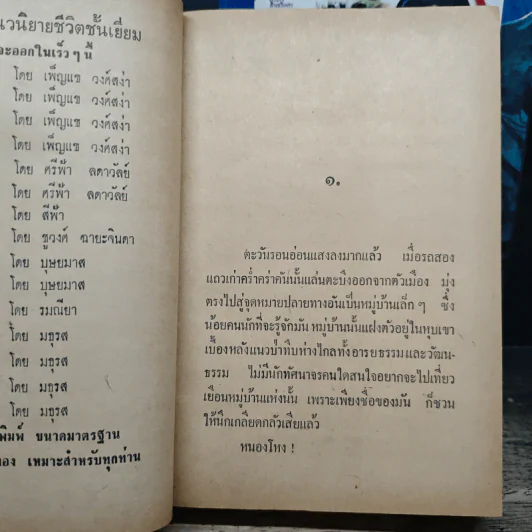 วนิยายชีวิตชั้นเยี่ยม
จะออกในเร็ว ๆ นี้
โดย เพ็ญแข วงศ์สง่า
โดย เพ็ญแข วงศ์สง่า
โดย เพ็ญแข วงศ์สง่า
โดย เพ็ญแข วงศ์สง่า
โดย ศรีฟ้า ลดาวัลย์
โดย ศรีฟ้า ลดาวัลย์
โดย สีฟ้า
โดย ชูวงศ์ ฉายะจินดา
โดย บุษยมาส
โดย บุษยมาส
โดย รมณียา
โดย มธุรส
โดย มธุรส
โดย มธุรส
โดย มธุรส
พิมพ์ ขนาดมาตรฐาน
เหมาะสำหรับทุกท่าน
๑.
ตะวันรอนอ่อนแสงลงมากแล้ว เมื่อรถสอง
แถวเก่าคร่ำคร่าคันนั้นแล่นตะบึงออกจากตัวเมือง มุ่ง
ตรงไปสู่จุดหมายปลายทางอันเป็นหมู่บ้านเล็ก ๆ ซึ่ง
น้อยคนนักที่จะรู้จักมัน หมู่บ้านนั้นแฝงตัวอยู่ในหุบเขา
เบื้องหลังแนวป่าทึบห่างไกลทั้งอารยธรรมและวัฒน-
ธรรม ไม่มีนักทัศนาจรคนใดสนใจอยากจะไปเที่ยว
เยือนหมู่บ้านแห่งนั้น เพราะเพียงชื่อของมัน ก็ชวน
ให้นึกเกลียดกลัวเสียแล้ว
หนองโหง !